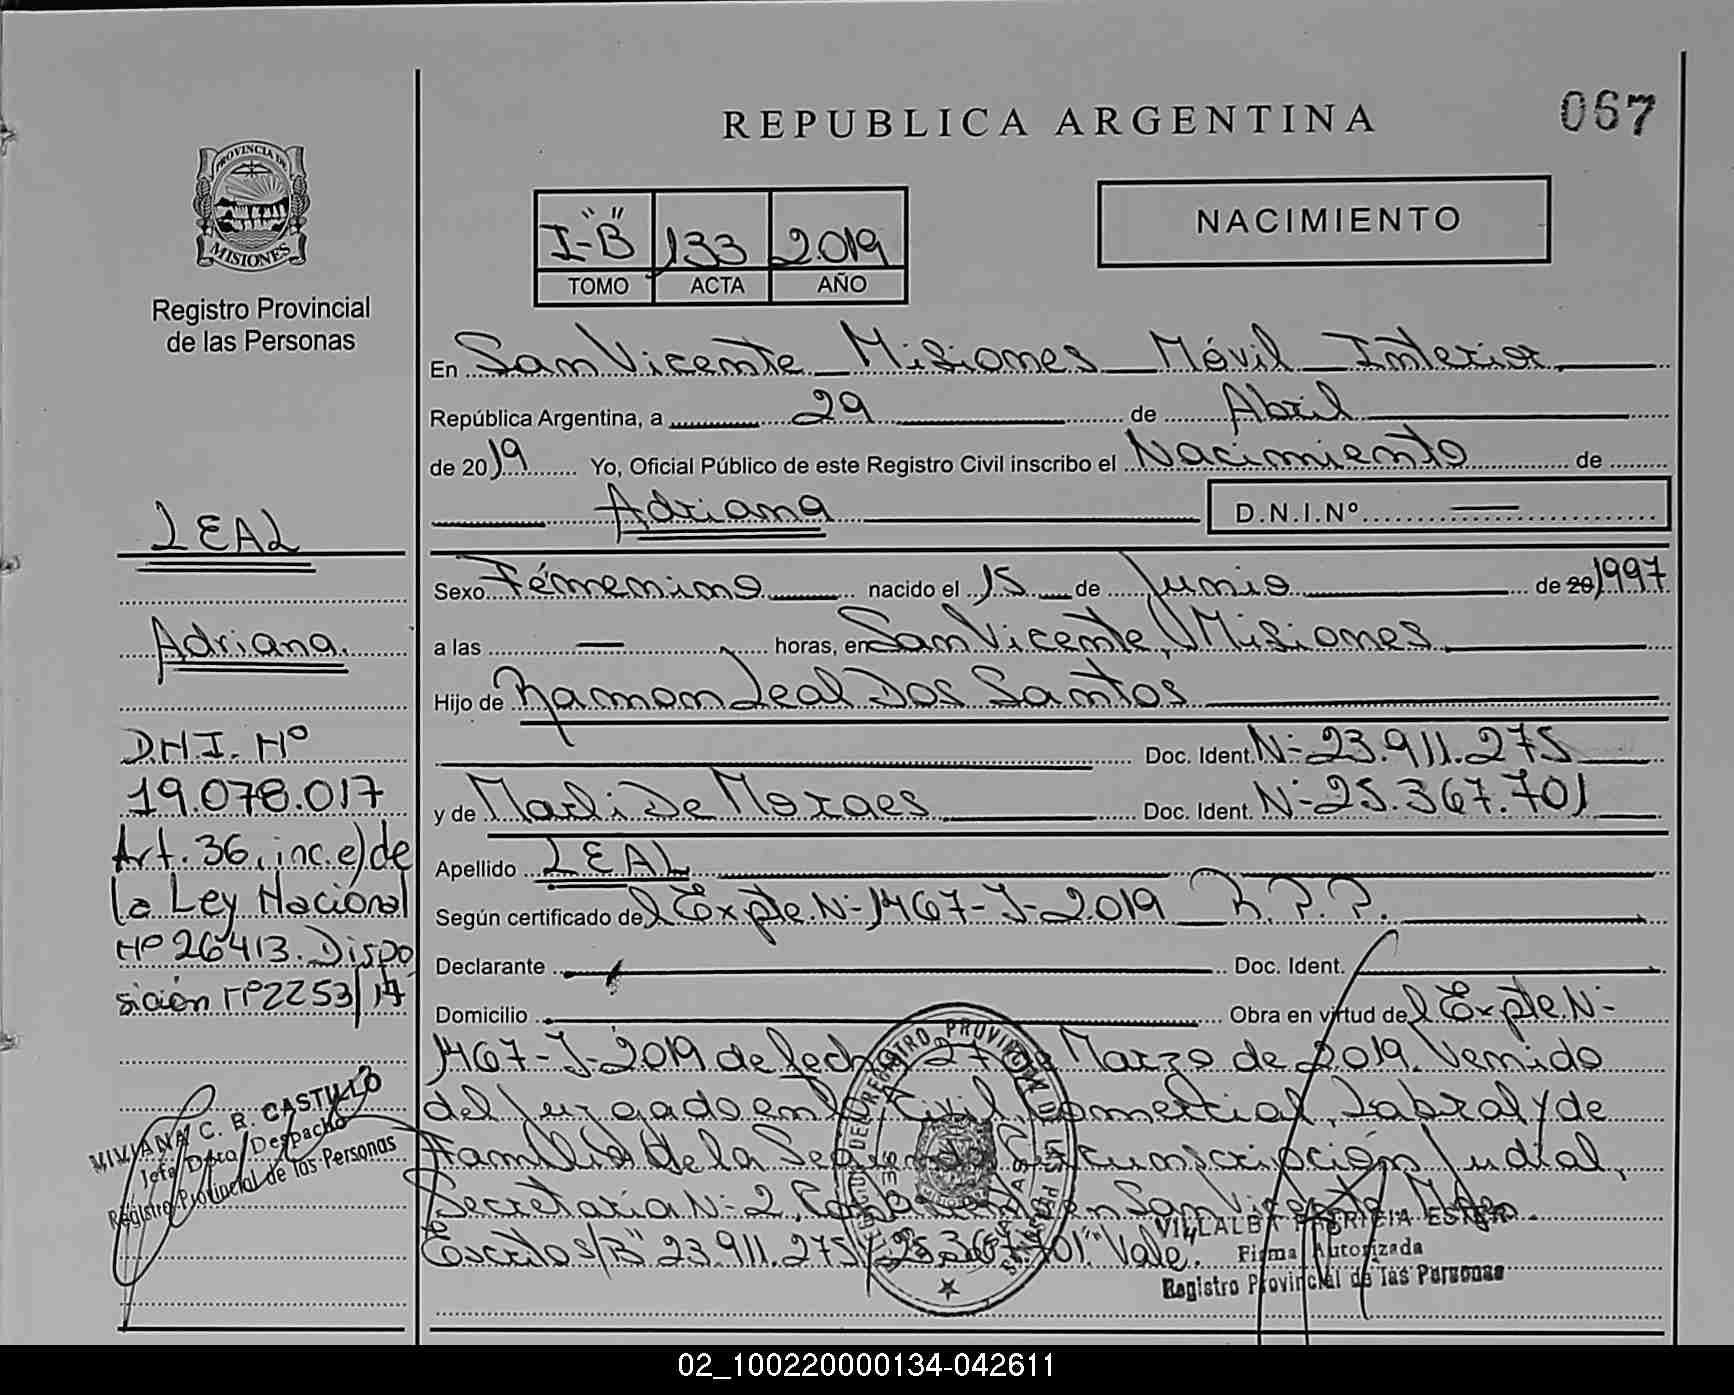 REPUBLICA ARGENTINA
067
PROVINCIA DE
MISIONES
Registro Provincial
de las Personas
I-"B" 133 2019
TOMO ACTA AÑO
NACIMIENTO
En San Vicente Misiones Móvil Interior
República Argentina, a 29 de Abril
de 2019 Yo, Oficial Público de este Registro Civil inscribo el Nacimiento de
Adriana D.N.I.Nº —
Sexo Fémenino nacido el 15 de Junio de 20 1997
a las — horas, en San Vicente, Misiones
Hijo de Ramon Leal Dos Santos
Doc. Ident. N- 23.911.275
y de Marli De Moraes Doc. Ident. N- 25.367.701
Apellido LEAL
Según certificado del Expte. N- 1467-J-2019 R.P.P.
Declarante Doc. Ident.
Domicilio Obra en virtud del Expte. N-
1467-J-2019 de fecha 27 de Marzo de 2019. Venido
del Juzgado en lo Civil, Comercial, Labral y de
Familia de la Segunda Circunscripción Judial,
Secretaría N- 2, Con en San Vicente
Escrito s/B" 23.911.275/25.367.701." Vale.
LEAL
Adriana.
D.N.I. Nº
19.078.017
Art. 36, inc. e) de
la Ley Nacional
Nº 26413. Dispo
sición Nº 2253/17
VIVIANA C. R. CASTILLO
Jefa Dpto. Despacho
Registro Provincial de las Personas
REGISTRO PROVINCIAL DE LAS PERSONAS
VILLALBA PATRICIA ESTER
Firma Autorizada
Registro Provincial de las Personas
02_100220000134-042611